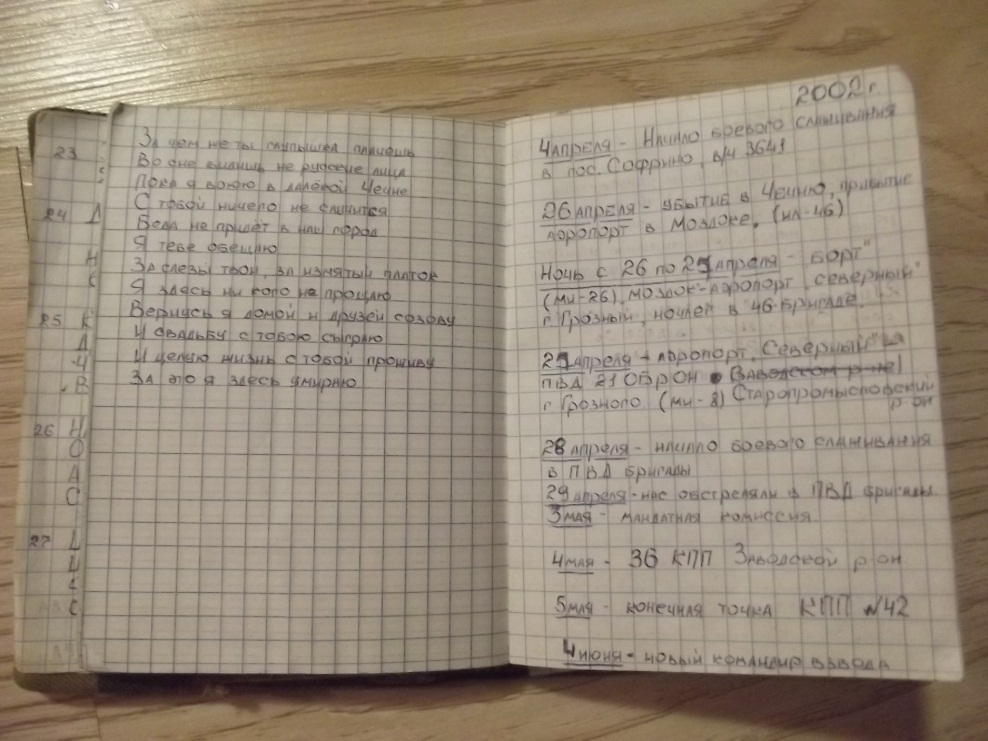 23
24 Д
Н
С
25 К
Д
Ч
В
26 Н
О
А
С
27
С
За чем не ты глупышка плачешь
Во сне видишь не русские лица
Пока я воюю в далёкой Чечне
С тобой ничего не случится
Беда не придёт в наш город
Я тебе обещаю
За слезы твои, за измятый платок
Я здесь ни кого не прощаю
Вернусь я домой и друзей созову
И свадьбу с тобою сыграю
И целую жизнь с тобой проживу
За это я здесь умираю
2002 г.
4 апреля - Начало боевого слаживания
в пос. Софрино, в/ч 3641
26 апреля - убытие в Чечню, прибытие
аэропорт в Моздоке. (ил-46)
Ночь с 26 по 27 апреля - борт"
(ми-26), Моздок-аэропорт "северный"
г Грозный, ночлег в 46-бригаде.
27 апреля - аэропорт "Северный" на
ПВД 21 ОБРОН Заводском р-не)
г Грозного (ми-8) Старопромысловский
р-он
28 апреля - начало боевого слаживания
в ПВД бригады
29 апреля - нас обстреляли в ПВД бригады
3 мая - мандатная комиссия
4 мая - 36 КПП Заводской р-он
5 мая - конечная точка КПП №42
4 июня - новый командир взвода